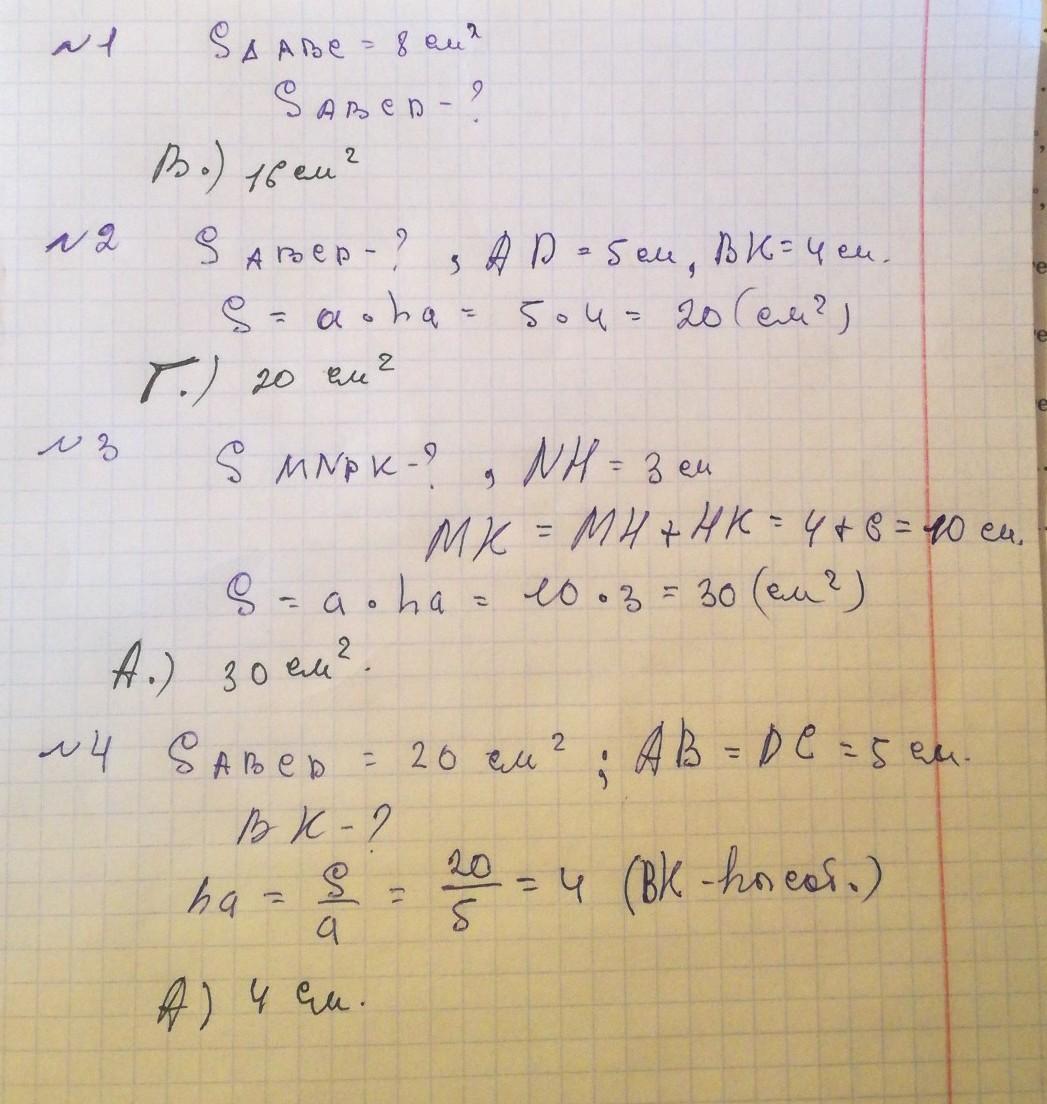 №1 S△ABC = 8 см²
SABCD - ?
В.) 16 см²
№2 SABCD - ? , AD = 5 см, BK = 4 см.
S = a · ha = 5 · 4 = 20 (см²)
Г.) 20 см²
№3 S MNPK - ? , NH = 3 см
MK = MH + HK = 4 + 6 = 10 см.
S = a · ha = 10 · 3 = 30 (см²)
А.) 30 см².
№4 SABCD = 20 см² ; AB = DC = 5 см.
BK - ?
ha = S/a = 20/5 = 4 (BK - высот.)
А) 4 см.